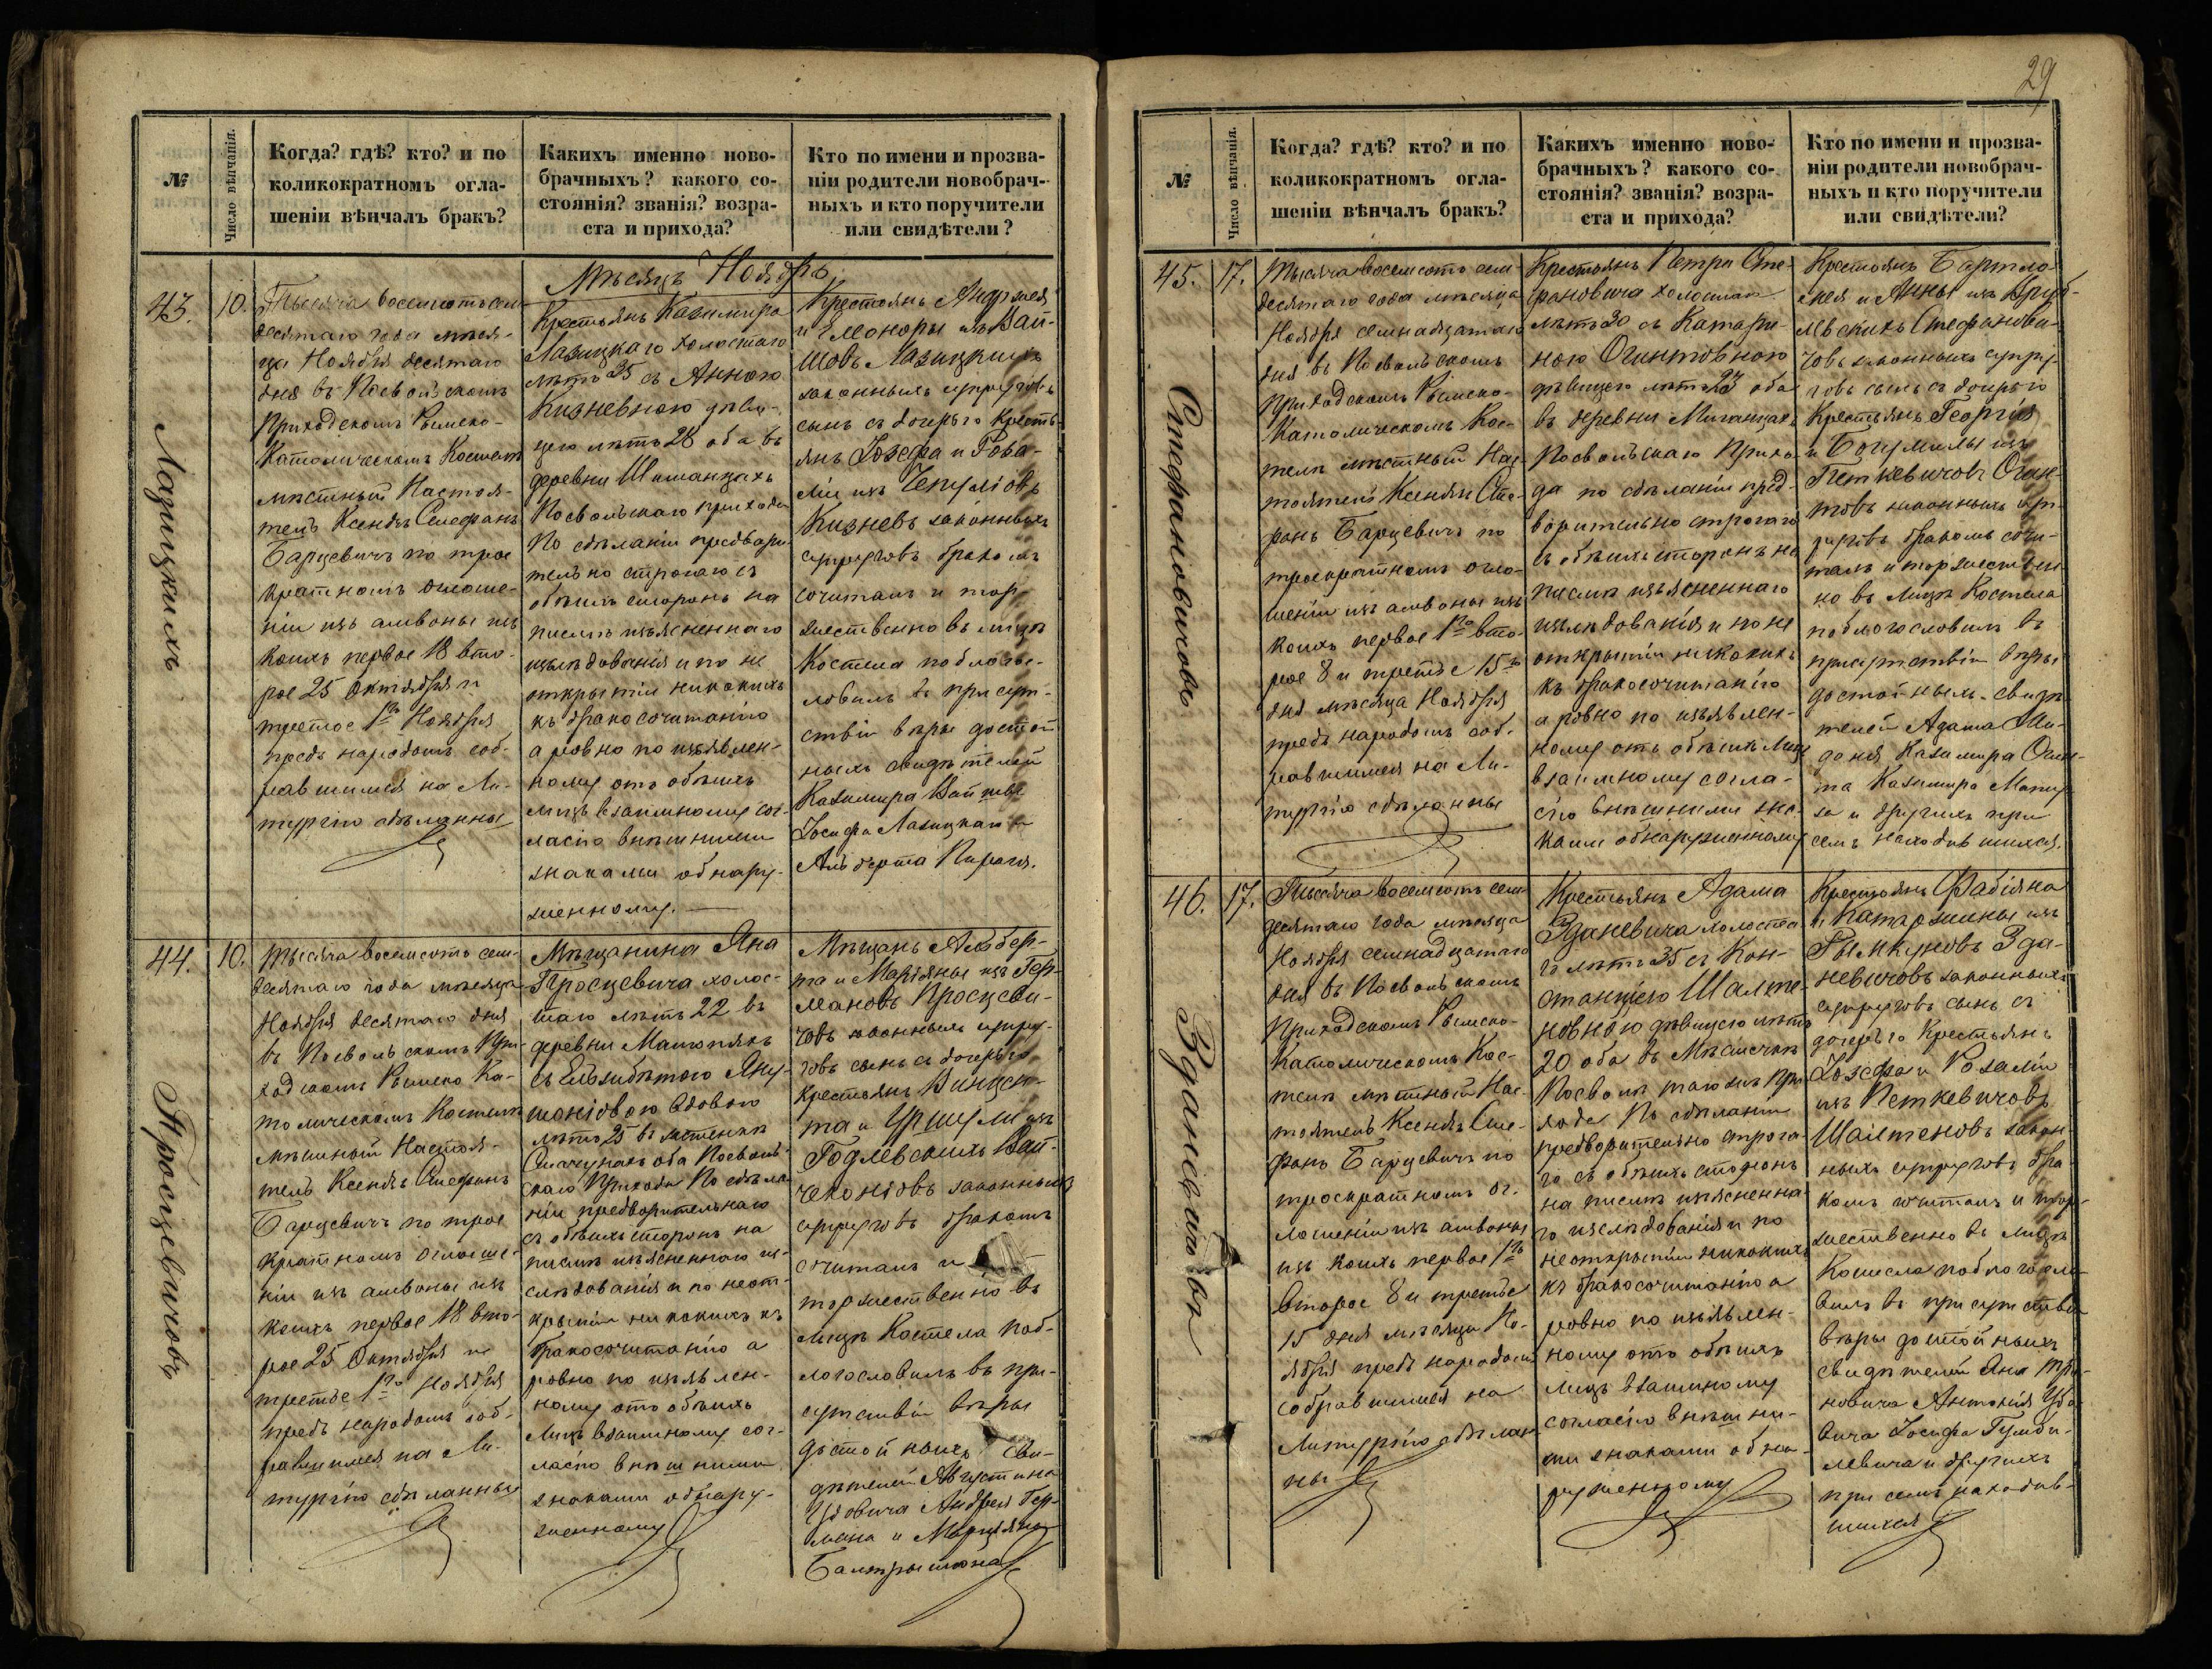 №
Число вѣнчанія.
Когда? гдѣ? кто? и по
коликократномъ огла-
шеніи вѣнчалъ бракъ?
Какихъ именно ново-
брачныхъ? какого со-
стоянія? званія? возра-
ста и прихода?
Кто по имени и прозва-
ніи родители новобрач-
ныхъ и кто поручители
или свидѣтели?
Мѣсяцъ Ноябрь
43.
10.
Лазицкихъ
Тысяча восемьсотъ сем-
десятаго года мѣся-
ца Ноября десятаго
дня въ Посвольскомъ
Приходскомъ Римско-
Католическомъ Костелѣ
мѣстный Настоя-
тель Ксендзъ Стефанъ
Барцевичъ по трое
кратномъ оглаше-
ніи изъ амвоны изъ
коихъ первое 18 вто-
рое 25 Октября и
третое 1го Ноября
предъ народомъ соб-
равшимся на Ли-
тургію сдѣланны
Крестьянъ Казимира
Лазицкаго холостаго
лѣтъ 35 съ Анною
Кизневною дѣви-
цею лѣтъ 28 оба въ
деревни Шиманцахъ
Посвольскаго прихода
По сдѣланіи предвари
тельно строгаго съ
обѣихъ сторонъ на
письмѣ изъясненнаго
изслѣдованія и по не
открытіи никакихъ
къ бракосочитанію
а ровно по изъявлен-
ному отъ обѣихъ
лицъ взаимному сог-
ласію внѣшними
знаками обнару-
женному.
Крестьянъ Андржея
и Элеоноры изъ Вай-
шовъ Лазицкихъ
законныхъ супруговъ
сынъ съ дочерью Кресть
янъ Іозефа и Роза-
ліи изъ Чепулісовъ
Кизневъ законныхъ
супруговъ бракомъ
сочиталъ и тор-
жественно въ лицѣ
Костела поблогос-
ловилъ въ присут-
ствіи вѣры достой
ныхъ свидѣтелей
Казимира Вайшвы
Іосифа Лазицкаго и
Альберта Пирага.
44.
10.
Просцевичовъ
Тысяча восемьсотъ сем-
десятаго года мѣсяца
Ноября десятаго дня
въ Посвольскомъ При-
ходскомъ Римско Ка-
толическомъ Костелѣ
мѣстный Настоя-
тель Ксендзъ Стефанъ
Барцевичъ по трое
кратномъ оглаше-
ніи изъ амвоны изъ
коихъ первое 18 вто-
рое 25 Октября и
третье 1го Ноября
предъ народомъ соб-
равшимся на Ли-
тургію сдѣланны
Мѣщанина Яна
Просцевича холос-
таго лѣтъ 22 въ
деревни
съ Ельзибѣтою Яну-
лѣтъ 25 въ
оба Посволь-
скаго Прихода По сдѣла
ніи предворительнаго
съ обѣихъ сторонъ на
письмѣ изъясненнаго из-
слѣдованія и по неот-
крытіи никакихъ къ
бракосочитанію а
ровно по изъявлен-
ному отъ обѣихъ
Лицъ взаимному сог-
ласію внѣшними
знаками обнару-
женному
Мѣщанъ Альбер-
та и Маріяны изъ Гер-
мановъ Просцеви-
човъ законныхъ супру-
говъ сынъ съ дочерью
Крестьянъ Винцен-
та и Уршули изъ
Годлевскихъ Вай-
законныхъ
супруговъ бракомъ
сочиталъ и
торжественно въ
лицѣ Костела поб-
логословилъ въ при-
сутствіи вѣры
достойныхъ сви-
дѣтелей Августина
Удовича Андрея Гер-
мана и Марціяна
29
№
Число вѣнчанія.
Когда? гдѣ? кто? и по
коликократномъ огла-
шеніи вѣнчалъ бракъ?
Какихъ именно ново-
брачныхъ? какого со-
стоянія? званія? возра-
ста и прихода?
Кто по имени и прозва-
ніи родители новобрач-
ныхъ и кто поручители
или свидѣтели?
45.
17.
Стефановичовъ
Тысяча восемьсотъ сем
десятаго года мѣсяца
Ноября семнадцатаго
дня въ Посвольскомъ
Приходскомъ Римско-
Католическомъ Кос-
телѣ мѣстный Нас-
тоятель Ксендзъ Сте-
фанъ Барцевичъ по
троекратномъ огла-
шеніи изъ амвоны изъ
коихъ первое 1го вто-
рое 8 и третье 15го
дня мѣсяца Ноября
предъ народомъ соб-
равшимся на Ли-
тургію сдѣланны
Крестьянъ Петра Сте-
фановича холостаго
лѣтъ 30 съ Катари-
ною Огинтовною
дѣвицею лѣтъ 23 оба
въ деревни Миганцахъ
Посвольскаго Прихо
да по сдѣланіи пред-
ворительно строгаго
съ обѣихъ сторонъ на
письмѣ изъясненнаго
изслѣдованія и по не
открытіи никакихъ
къ бракосочитанію
а ровно по изъявлен-
ному отъ обѣихъ Лицъ
взаимному согла-
сію внѣшними зна-
ками обнаруженному
Крестьянъ Бартло-
мея и Анны изъ
Стефанови-
човъ законныхъ супру-
говъ сынъ съ дочерью
Крестьянъ Георгія
и Богумилы изъ
Петкевичовъ Огин-
товъ законныхъ суп-
руговъ бракомъ сочи-
талъ и торжествен
но въ Лицѣ Костела
поблогословилъ въ
присутствіи вѣры
достойныхъ свидѣ
телей Адама
Казимира Огин-
та Казимира
и другихъ при
семъ находившихся.
46.
17.
Здановичовъ
Тысяча восемьсотъ сем
десятаго года мѣсяца
Ноября семнадцатаго
дня въ Посвольскомъ
Приходскомъ Римско-
Католическомъ Кос-
телѣ мѣстный Нас-
тоятель Ксендзъ Сте-
фанъ Барцевичъ по
троекратномъ ог-
лошеніи изъ амвоны
изъ коихъ первое 1го
второе 8 и третье
15 дня мѣсяца Но-
ября предъ народомъ
собравшимся на
Литургію сдѣлан
ны
Крестьянъ Адама
Зданевича холоста
го лѣтъ 35 съ Кон-
станціею Шалте-
новною дѣвицею лѣтъ
20 оба въ Мѣстечкѣ
Посволѣ тогожъ При
хода По сдѣланіи
предворительно строга-
го съ обѣихъ сторонъ
на письмѣ изъясненна-
го изслѣдованія и по
неоткрытіи никакихъ
къ бракосочитанію а
ровно по изъявлен-
ному отъ обѣихъ
лицъ взаимному
согласію внѣшни-
ми знаками обна-
руженному
Крестьянъ Фабіяна
и Катаржины изъ
Рымкуновъ Зда-
невичовъ законныхъ
супруговъ сынъ съ
дочерью Крестьянъ
Іозефа и Розаліи
изъ Петкевичовъ
Шалтеновъ закон-
ныхъ супруговъ бра
комъ сочиталъ и тор-
жественно въ лицѣ
Костела поблогосло-
вилъ въ присутствіи
вѣры достойныхъ
свидѣтелей Яна
Антонія Удо-
вича Іосифа Гумби-
левича и другихъ
при семъ находив-
шихся